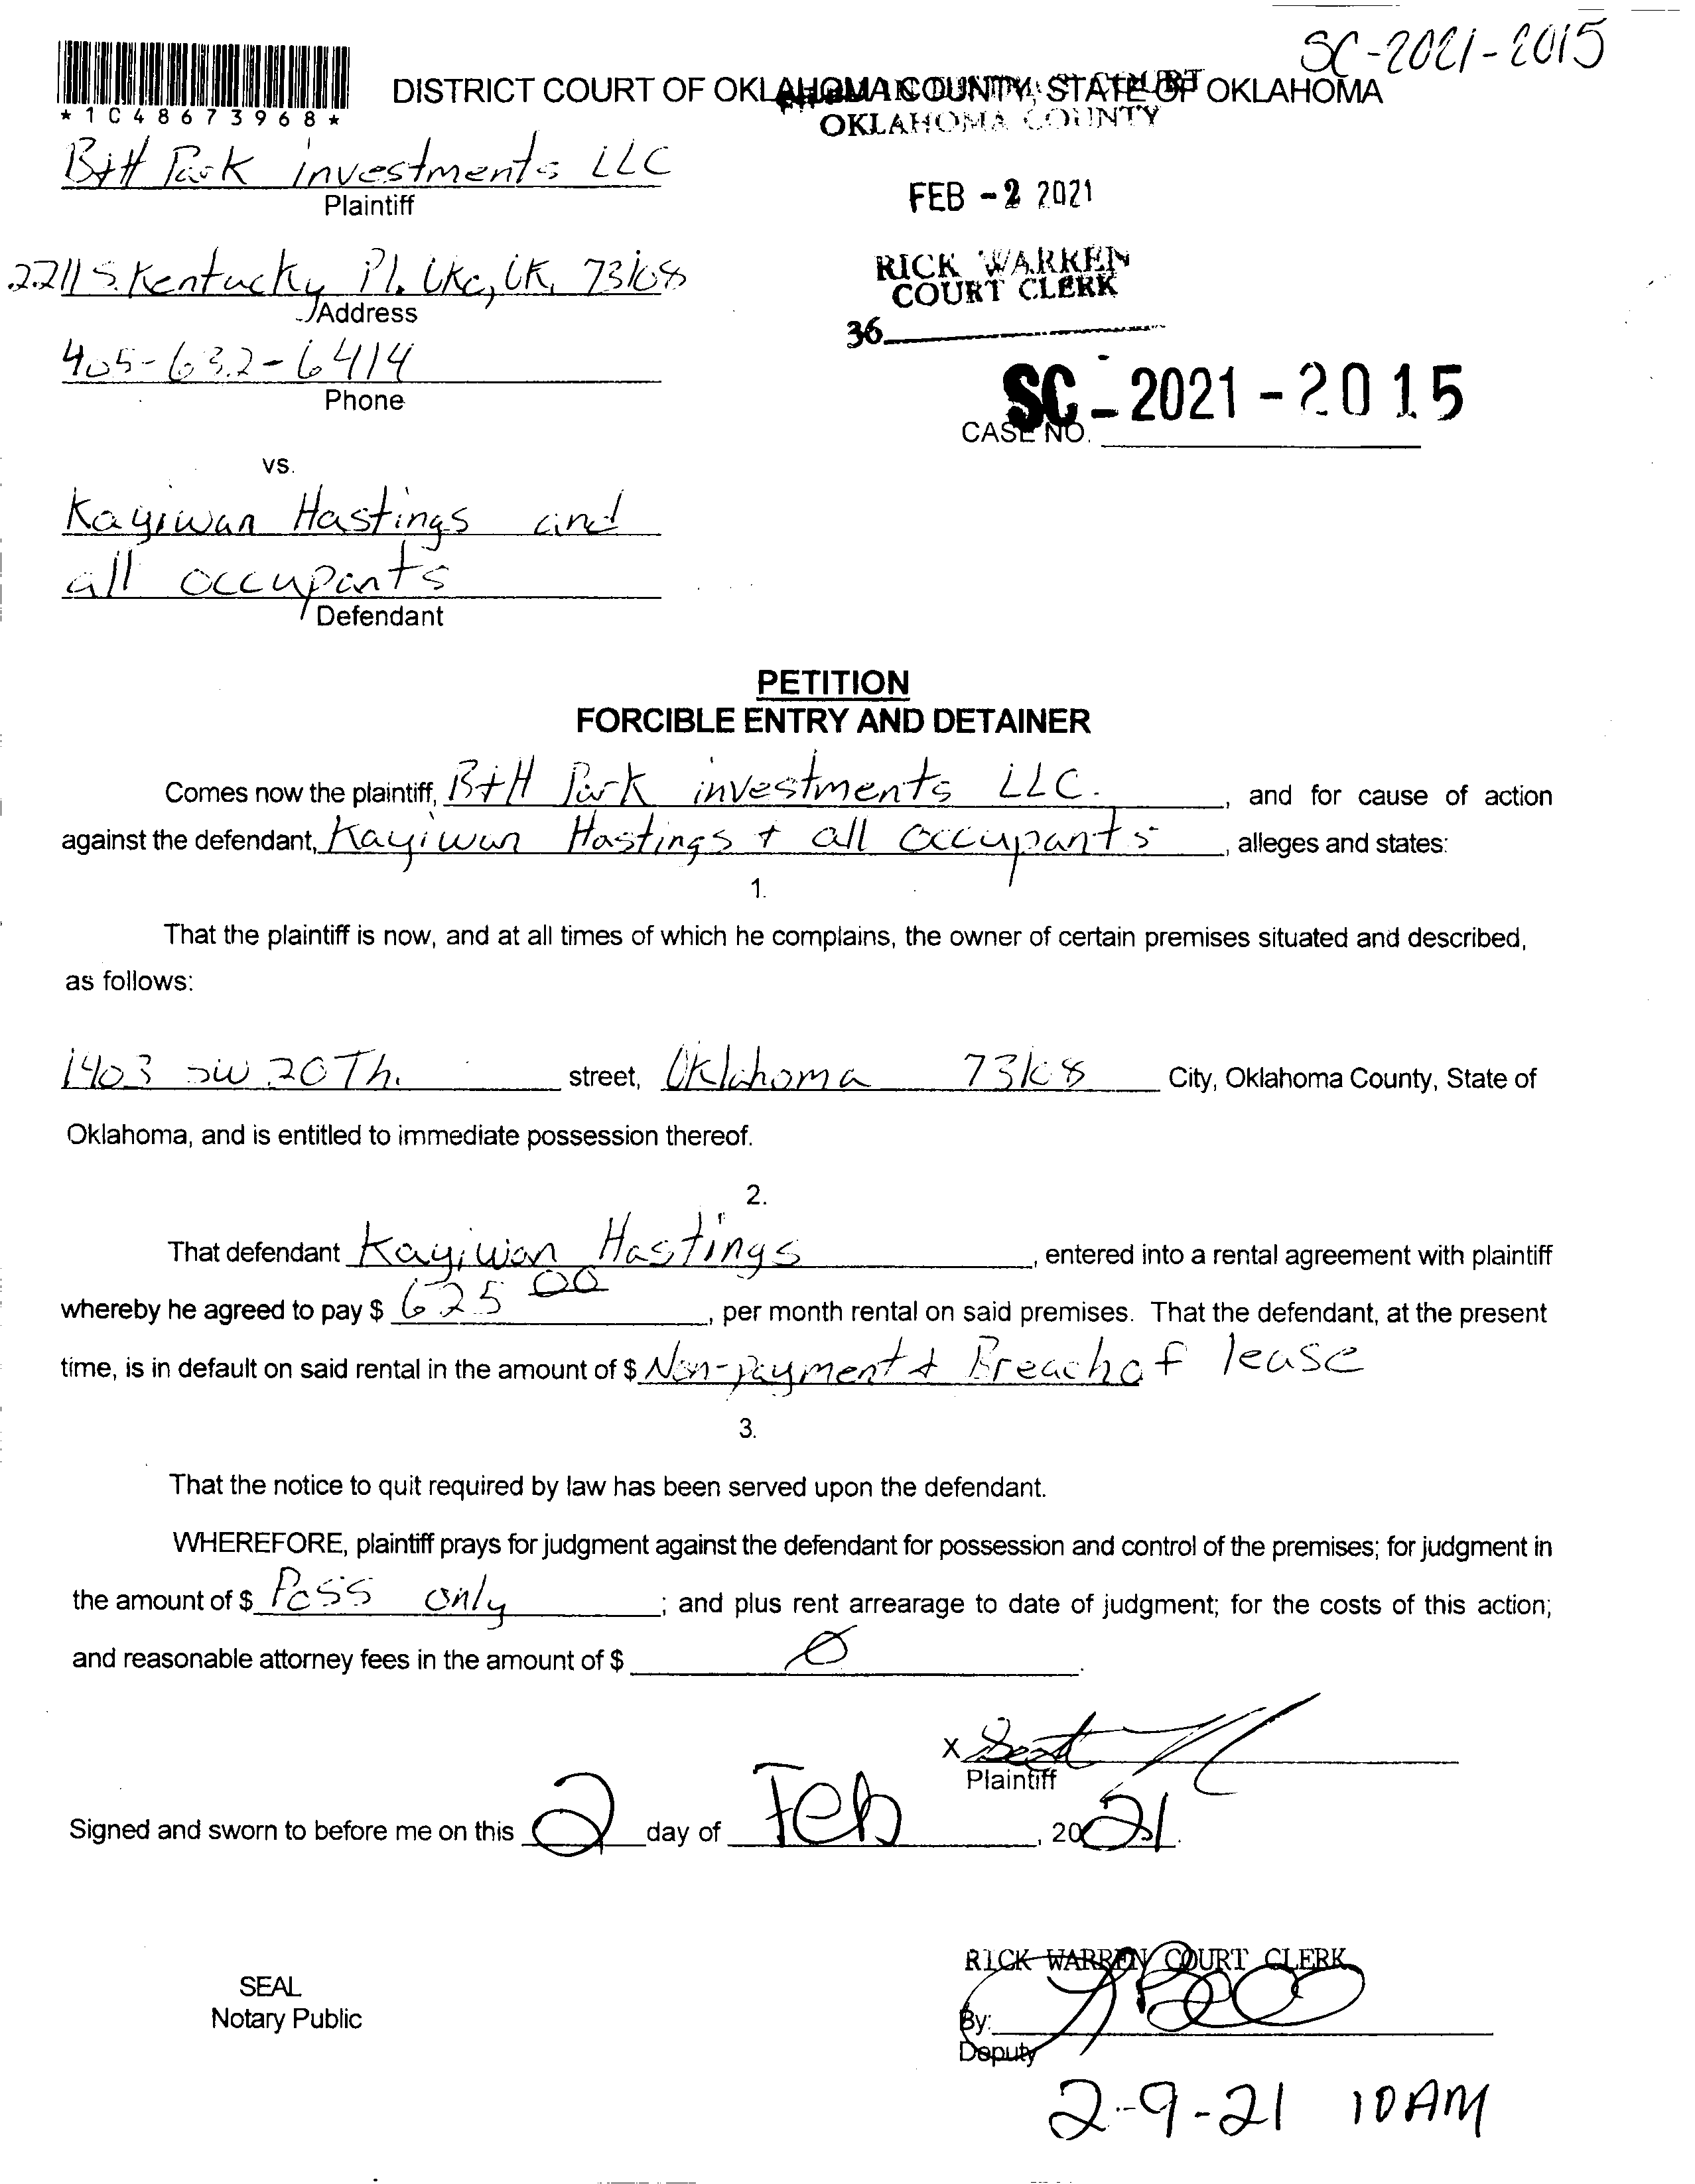 SC-2021-2015
*1048673968*
DISTRICT COURT OF OKLAHOMA COUNTY, STATE OF OKLAHOMA
OKLAHOMA COUNTY
B+H Park investments LLC
Plaintiff
FEB -2 2021
2211 S. Kentucky Pl. Okc, OK, 73108
Address
RICK WARREN
COURT CLERK
36
405-632-6414
Phone
SC-2021-2015
CASE NO.
vs.
Kayiwan Hastings and
all occupants
Defendant
PETITION
FORCIBLE ENTRY AND DETAINER
Comes now the plaintiff, B+H Park investments LLC. , and for cause of action
against the defendant, Kayiwan Hastings + all occupants , alleges and states:
1.
That the plaintiff is now, and at all times of which he complains, the owner of certain premises situated and described,
as follows:
1403 SW 20Th. street, Oklahoma 73108 City, Oklahoma County, State of
Oklahoma, and is entitled to immediate possession thereof.
2.
That defendant Kayiwan Hastings , entered into a rental agreement with plaintiff
whereby he agreed to pay $ 625 00 , per month rental on said premises. That the defendant, at the present
time, is in default on said rental in the amount of $ Non-payment + Breach of lease
3.
That the notice to quit required by law has been served upon the defendant.
WHEREFORE, plaintiff prays for judgment against the defendant for possession and control of the premises; for judgment in
the amount of $ Poss only ; and plus rent arrearage to date of judgment; for the costs of this action;
and reasonable attorney fees in the amount of $ Ø .
X
Plaintiff
Signed and sworn to before me on this 2 day of Feb , 2021.
SEAL
Notary Public
RICK WARREN COURT CLERK
By:
Deputy
2-9-21 10AM